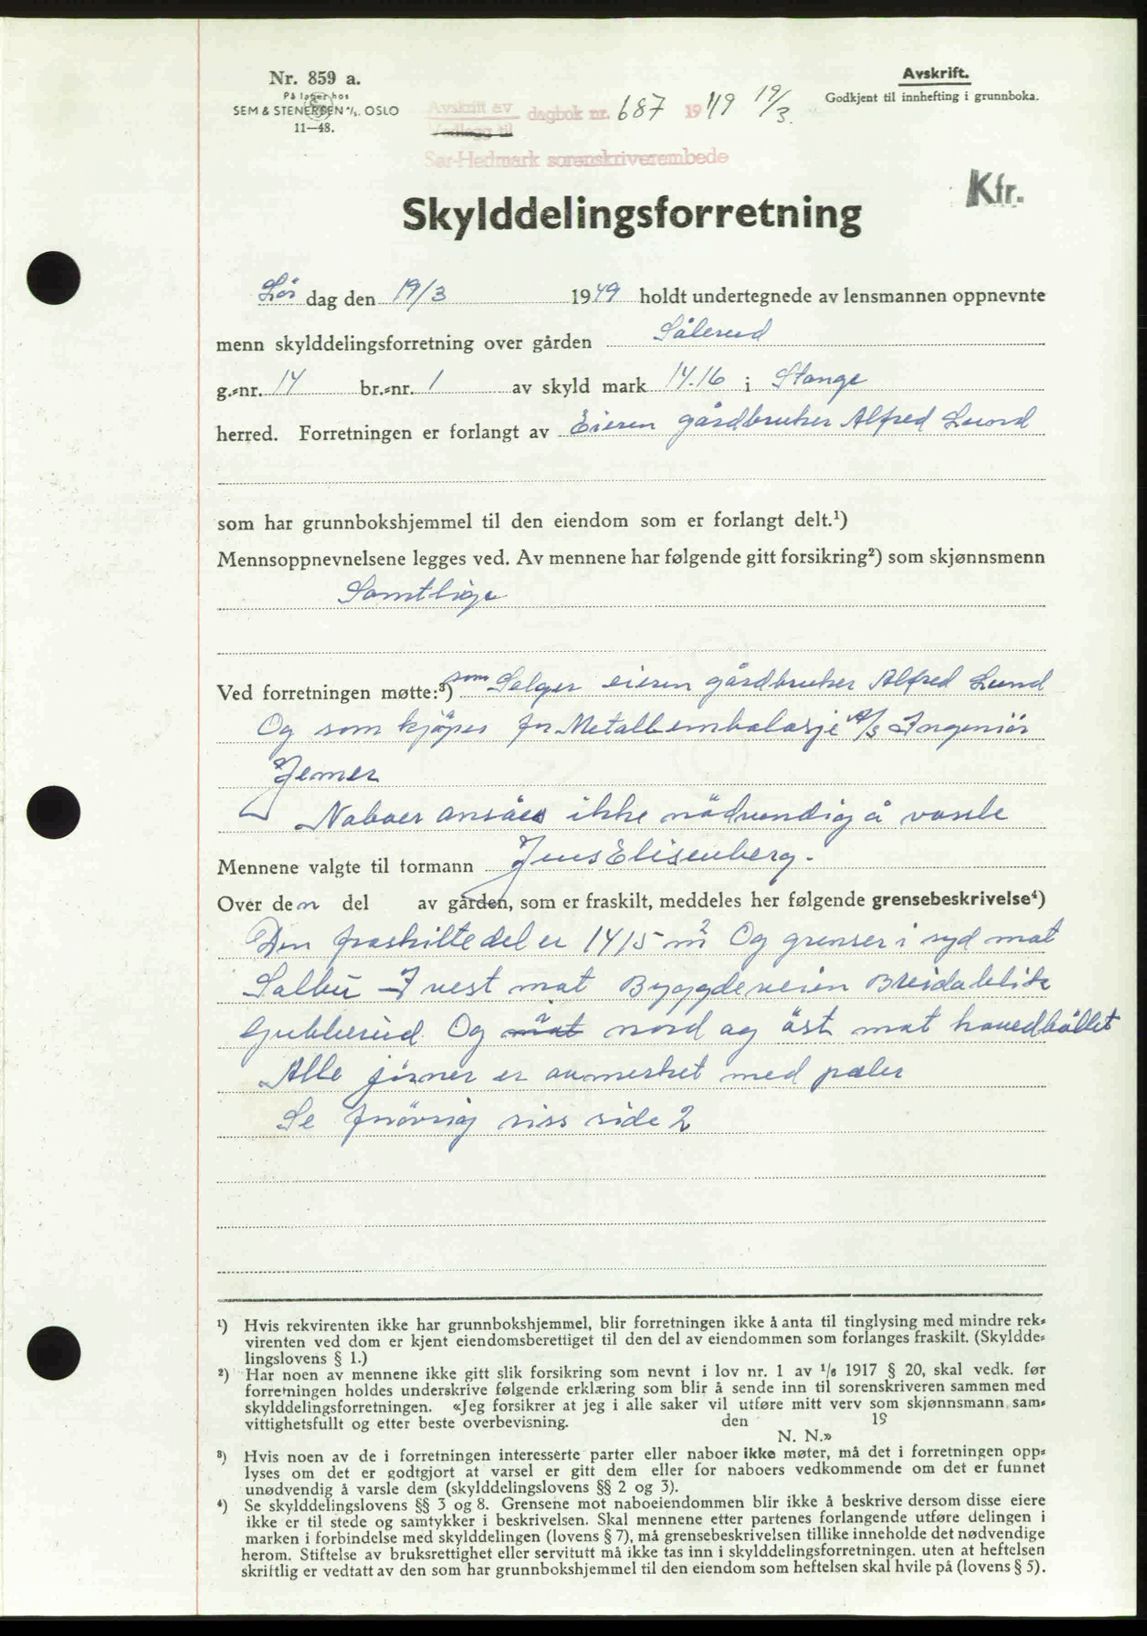 Nr. 859 a.
På lager hos
SEM & STENERSEN A/S. OSLO
11—48.
Avskrift.
Godkjent til innhefting i grunnboka.
Avskrift av
Vedlegg til
dagbok nr. 687 1949 19/3.
Sør-Hedmark sorenskriverembede
Kfr.
Skylddelingsforretning
Lör dag den 19/3 1949 holdt undertegnede av lensmannen oppnevnte
menn skylddelingsforretning over gården Sålerud
g.-nr. 14 br.-nr. 1 av skyld mark 14.16 i Stange
herred. Forretningen er forlangt av Eieren gårdbruker Alfred Lund
som har grunnbokshjemmel til den eiendom som er forlangt delt.¹)
Mennsoppnevnelsene legges ved. Av mennene har følgende gitt forsikring²) som skjønnsmenn
Samtlige
Ved forretningen møtte:³) som Selger eieren gårdbruker Alfred Lund
Og som kjøper for Metallembalasje A/S Ingeniör
Jemer
Naboer ansåes ikke nödvendig å varsle
Mennene valgte til formann Jens Elisenberg.
Over den del av gården, som er fraskilt, meddeles her følgende grensebeskrivelse⁴)
Den fraskilte del er 1415 m² Og grenser i syd mot
Salbu I vest mot Byggdeveien Breidablikk
Gubberud. Og mot nord og öst mot hovedbøllet
Alle jörner er avmerket med pæler
Se forövrig riss side 2
¹) Hvis rekvirenten ikke har grunnbokshjemmel, blir forretningen ikke å anta til tinglysing med mindre rek-
virenten ved dom er kjent eiendomsberettiget til den del av eiendommen som forlanges fraskilt. (Skyldde-
lingslovens § 1.)
²) Har noen av mennene ikke gitt slik forsikring som nevnt i lov nr. 1 av 1/6 1917 § 20, skal vedk. før
forretningen holdes underskrive følgende erklæring som blir å sende inn til sorenskriveren sammen med
skylddelingsforretningen. «Jeg forsikrer at jeg i alle saker vil utføre mitt verv som skjønnsmann sam-
vittighetsfullt og etter beste overbevisning. den 19
N. N.»
³) Hvis noen av de i forretningen interesserte parter eller naboer ikke møter, må det i forretningen opp-
lyses om det er godtgjort at varsel er gitt dem eller for naboers vedkommende om det er funnet
unødvendig å varsle dem (skylddelingslovens §§ 2 og 3).
⁴) Se skylddelingslovens §§ 3 og 8. Grensene mot naboeiendommen blir ikke å beskrive dersom disse eiere
ikke er til stede og samtykker i beskrivelsen. Skal mennene etter partenes forlangende utføre delingen i
marken i forbindelse med skylddelingen (lovens § 7), må grensebeskrivelsen tillike inneholde det nødvendige
herom. Stiftelse av bruksrettighet eller servitutt må ikke tas inn i skylddelingsforretningen, uten at heftelsen
skriftlig er vedtatt av den som har grunnbokshjemmel til den eiendom som heftelsen skal hvile på (lovens § 5).